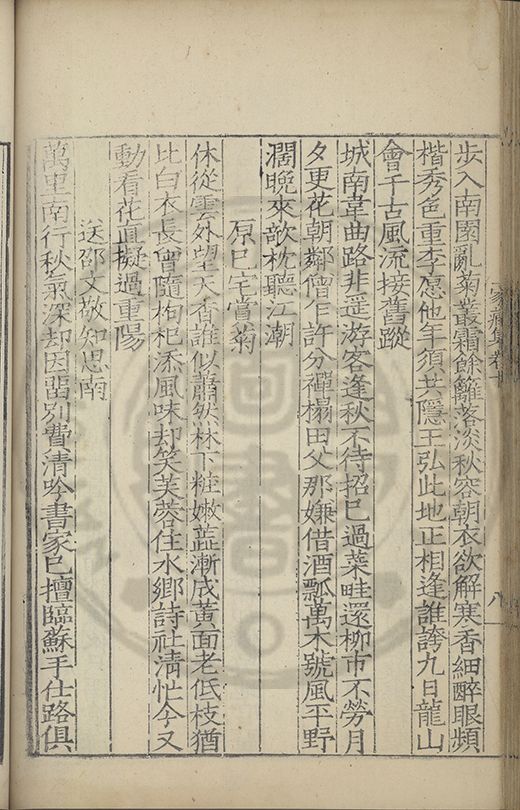 步入南園亂菊叢霜餘籬落淡秋容朝衣欲解寒香細醉眼頻
楷秀色重李愿他年須共隱王弘此地正相逢誰誇九日龍山
會千古風流接舊蹤
城南韋曲路非遥游客逢秋不待招已過菜畦還柳市不勞月
夕更花朝鄰僧乍許分禪榻田父那嫌借酒瓢萬木號風平野
濶晚來欹枕聽江潮
原已宅賞菊
休從雲外望天香誰似蕭然林下粧嫩蕋漸成黃面老低枝猶
比白衣長曾隨枸杞添風味却笑芙蓉住水鄉詩社清忙今又
動看花直擬過重陽
送邵文敬知思南
萬里南行秋氣深却因畱别費清吟書家已擅臨蘇手仕路俱
家藏集卷十
八